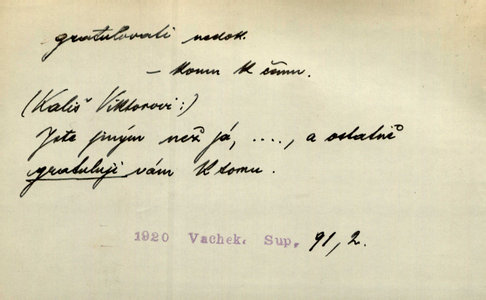 gratulovati nedok.
– komu k čemu.
(Kališ Viktorovi:)
Jste jiným než já, ...., a ostatně
gratuluji vám k tomu.
1920 Vachek. Sup, 91,2.